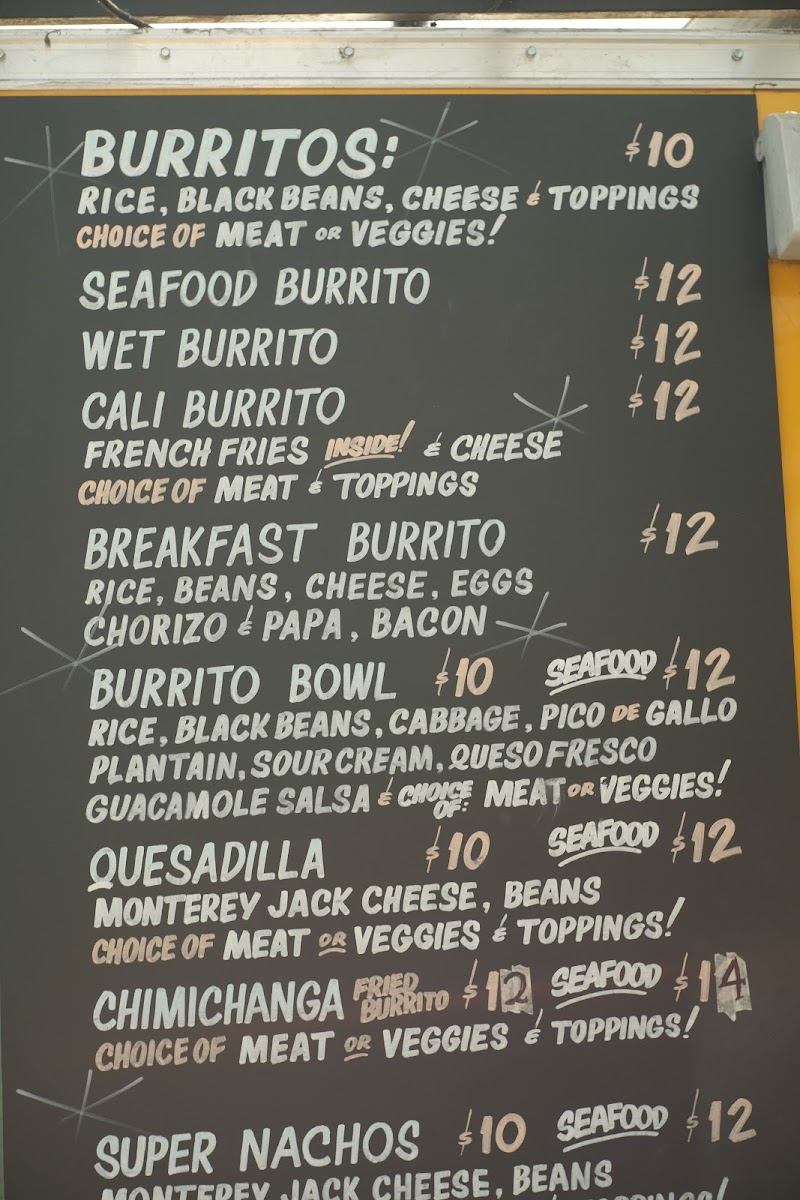 BURRITOS: $10
RICE, BLACK BEANS, CHEESE & TOPPINGS
CHOICE OF MEAT OR VEGGIES!
SEAFOOD BURRITO $12
WET BURRITO $12
CALI BURRITO $12
FRENCH FRIES INSIDE! & CHEESE
CHOICE OF MEAT & TOPPINGS
BREAKFAST BURRITO $12
RICE, BEANS, CHEESE, EGGS
CHORIZO & PAPA, BACON
BURRITO BOWL $10 SEAFOOD $12
RICE, BLACK BEANS, CABBAGE, PICO DE GALLO
PLANTAIN, SOUR CREAM, QUESO FRESCO
GUACAMOLE SALSA & CHOICE OF: MEAT OR VEGGIES!
QUESADILLA $10 SEAFOOD $12
MONTEREY JACK CHEESE, BEANS
CHOICE OF MEAT OR VEGGIES & TOPPINGS!
CHIMICHANGA FRIED BURRITO $12 SEAFOOD $14
CHOICE OF MEAT OR VEGGIES & TOPPINGS!
SUPER NACHOS $10 SEAFOOD $12
MONTEREY JACK CHEESE, BEANS
TOPPINGS!